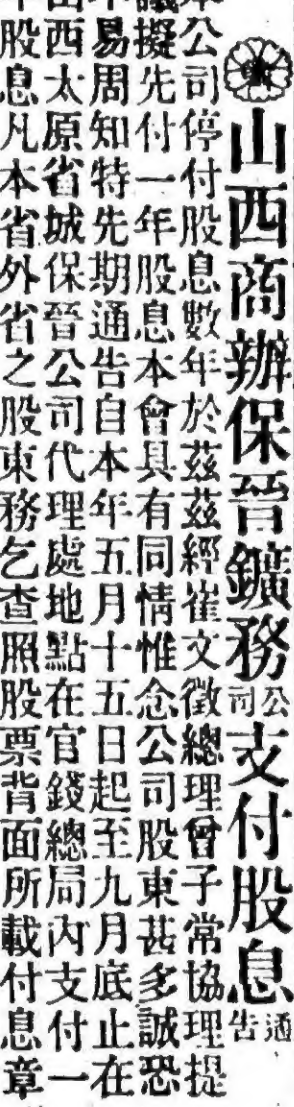 山西商辦保晉鑛務公司支付股息通告
本公司停付股息數年於茲茲經崔文徵總理曾子常協理提
議擬先付一年股息本會具有同情惟念公司股東甚多誠恐
不易周知特先期通告自本年五月十五日起至九月底止在
山西太原省城保晉公司代理處地點在官錢總局內支付一
年股息凡本省外省之股東務乞查照股票背面所載付息章